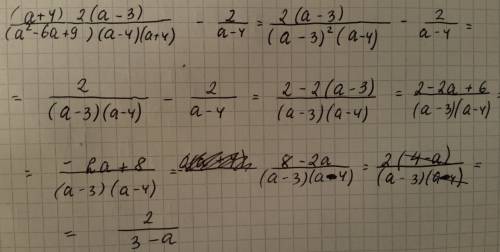 (a+4) 2(a-3) / (a²-6a+9)(a-4)(a+4) - 2/(a-4) = 2(a-3) / (a-3)²(a-4) - 2/(a-4) =
= 2 / (a-3)(a-4) - 2/(a-4) = 2-2(a-3) / (a-3)(a-4) = 2-2a+6 / (a-3)(a-4) =
= -2a+8 / (a-3)(a-4) = 8-2a / (a-3)(a-4) = 2(4-a) / (a-3)(a-4) =
= 2 / 3-a